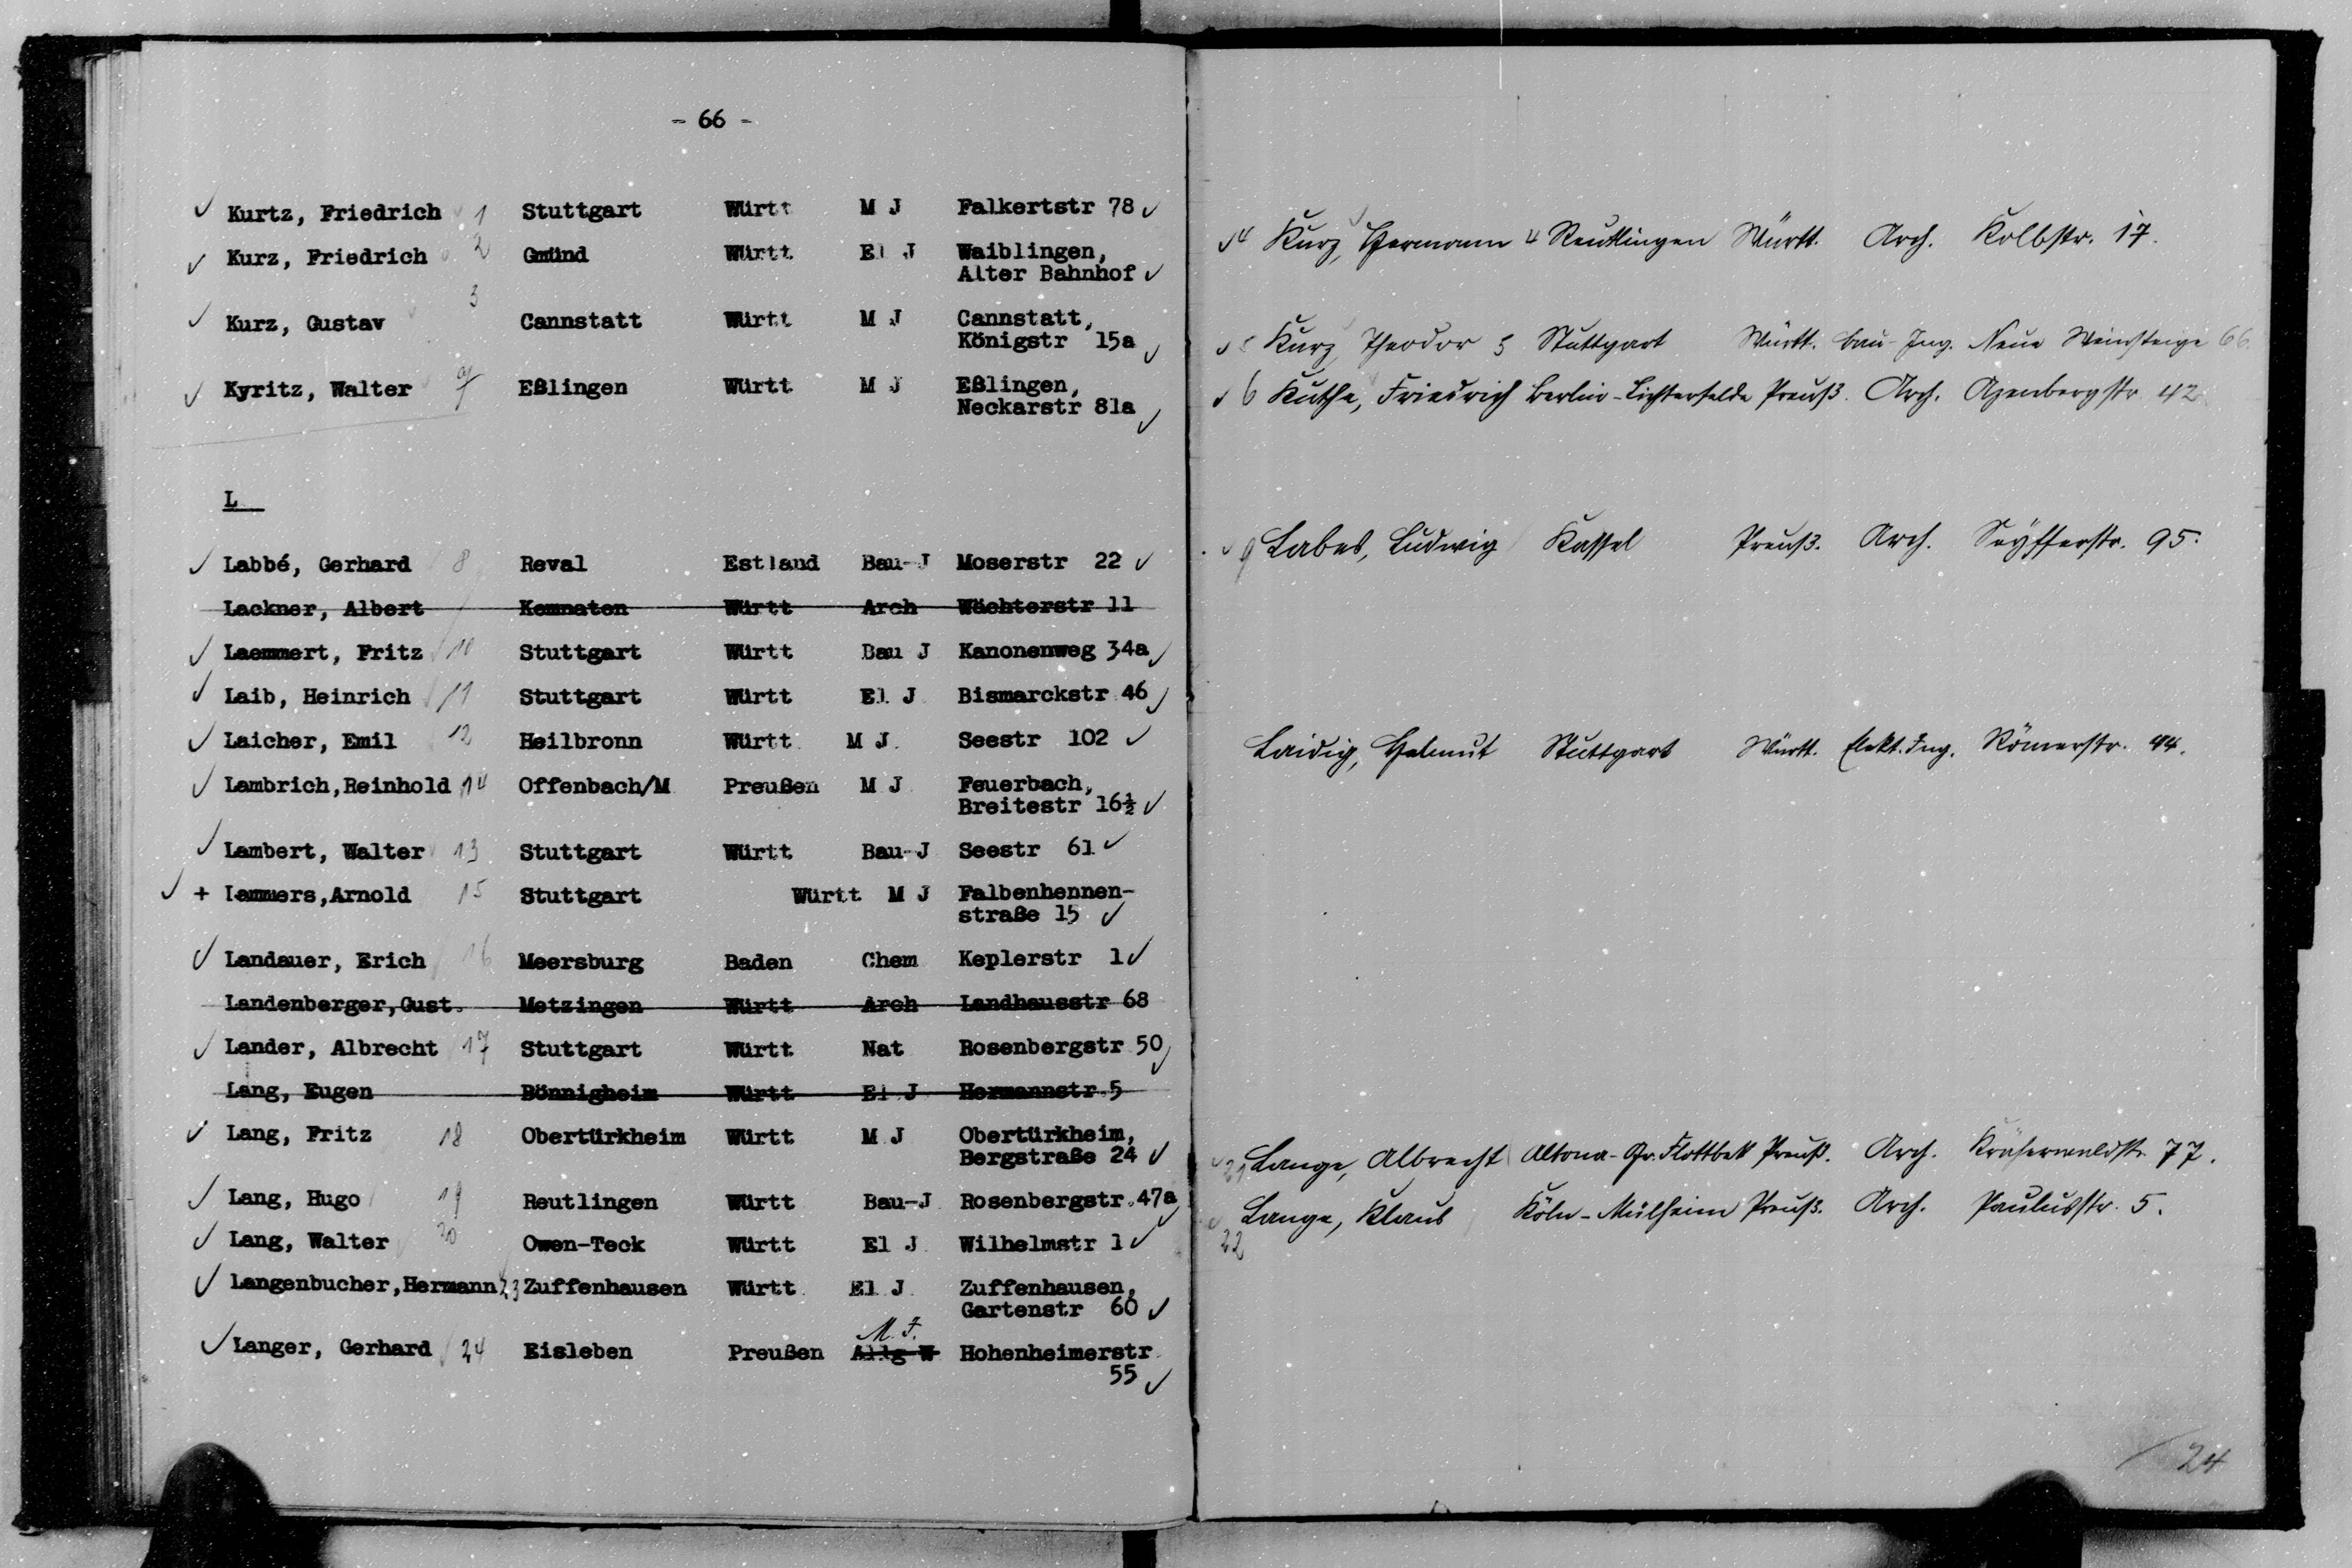 - 66 -
✓ Kurtz, Friedrich 1 Stuttgart Württ M J Falkertstr 78 ✓
✓ Kurz, Friedrich 2 Gmünd Württ El J Waiblingen,
Alter Bahnhof ✓
✓ Kurz, Gustav 3 Cannstatt Württ M J Cannstatt,
Königstr 15a ✓
✓ Kyritz, Walter 7 Eßlingen Württ M J Eßlingen,
Neckarstr 81a ✓
L
✓ Labbé, Gerhard 8 Reval Estland Bau-J Moserstr 22 ✓
Lackner, Albert Kemnaten Württ Arch Wächterstr 11
✓ Laemmert, Fritz 10 Stuttgart Württ Bau J Kanonenweg 34a ✓
✓ Laib, Heinrich 11 Stuttgart Württ El J Bismarckstr 46 ✓
✓ Laicher, Emil 12 Heilbronn Württ M J Seestr 102 ✓
✓ Lambrich,Reinhold 14 Offenbach/M Preußen M J Feuerbach,
Breitestr 16½ ✓
✓ Lambert, Walter 13 Stuttgart Württ Bau-J Seestr 61 ✓
✓ + Lammers,Arnold 15 Stuttgart Württ M J Falbenhennen-
straße 15 ✓
✓ Landauer, Erich 16 Meersburg Baden Chem Keplerstr 1 ✓
Landenberger,Gust. Metzingen Württ Arch Landhausstr 68
✓ Lander, Albrecht 17 Stuttgart Württ Nat Rosenbergstr 50 ✓
Lang, Eugen Bönnigheim Württ El J Hermannstr 5
✓ Lang, Fritz 18 Obertürkheim Württ M J Obertürkheim,
Bergstraße 24 ✓
✓ Lang, Hugo 19 Reutlingen Württ Bau-J Rosenbergstr 47a ✓
✓ Lang, Walter 20 Owen-Teck Württ El J Wilhelmstr 1 ✓
✓ Langenbucher,Hermann 23 Zuffenhausen Württ El J Zuffenhausen,
Gartenstr 60 ✓
M. J.
✓ Langer, Gerhard 24 Eisleben Preußen Allg W Hohenheimerstr
55 ✓
✓ 4 Kurz, Hermann 4 Reutlingen Württ. Arch. Kolbstr. 17.
✓ 5 Kurz, Theodor 5 Stuttgart Württ. Bau-Ing. Neue Weinsteige 66.
✓ 6 Kuthe, Friedrich Berlin-Lichterfelde Preuß. Arch. Azenbergstr. 42
✓ 9 Labes, Ludwig Kassel Preuß. Arch. Seyfferstr. 95.
Laidig, Helmut Stuttgart Württ. Elekt. Ing. Römerstr. 44.
✓ 21 Lange, Albrecht Altona-Gr. Flottbek Preuß. Arch. Kräherwaldstr. 77.
✓ Lange, Klaus Köln-Mülheim Preuß. Arch. Paulusstr. 5.
22
24